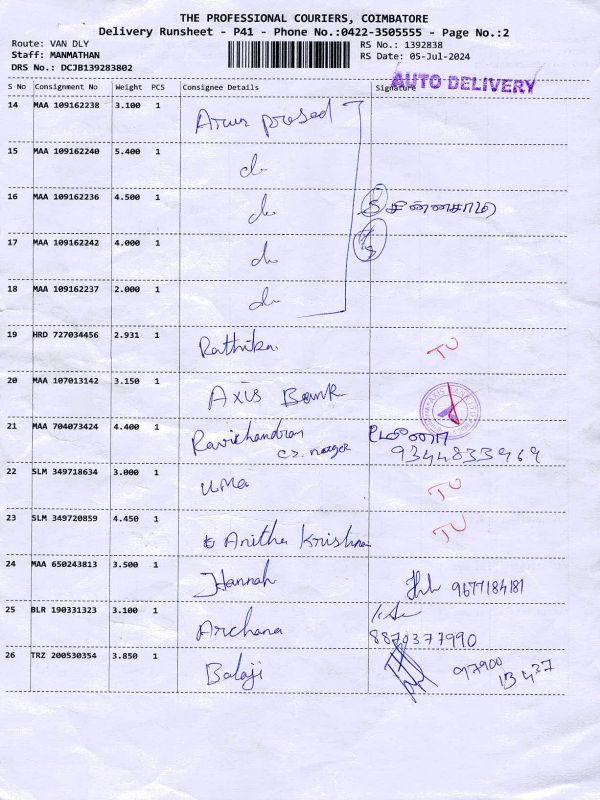 THE PROFESSIONAL COURIERS, COIMBATORE
Delivery Runsheet - P41 - Phone No.:0422-3505555 - Page No.:2
Route: VAN DLY
RS No.: 1392838
Staff: MANMATHAN
RS Date: 05-Jul-2024
DRS No.: DCJB139283802
AUTO DELIVERY
S No Consignment No Weight PCS Consignee Details Signature
14 MAA 109162238 3.100 1 Arun prasad
15 MAA 109162240 5.400 1 do
16 MAA 109162236 4.500 1 do 5 சின்னசாமி
17 MAA 109162242 4.000 1 do
18 MAA 109162237 2.000 1 do
19 HRD 727034456 2.931 1 Rathika TU
20 MAA 107013142 3.150 1 Axis Bank
21 MAA 704073424 4.400 1 Ravichandran
9344833969
22 SLM 349718634 3.000 1 uma TU
23 SLM 349720859 4.450 1 Anitha Krishna TU
24 MAA 650243813 3.500 1 Hannah 9677184181
25 BLR 190331323 3.100 1 Archana
8870377990
26 TRZ 200530354 3.850 1 Balaji 97900
13437